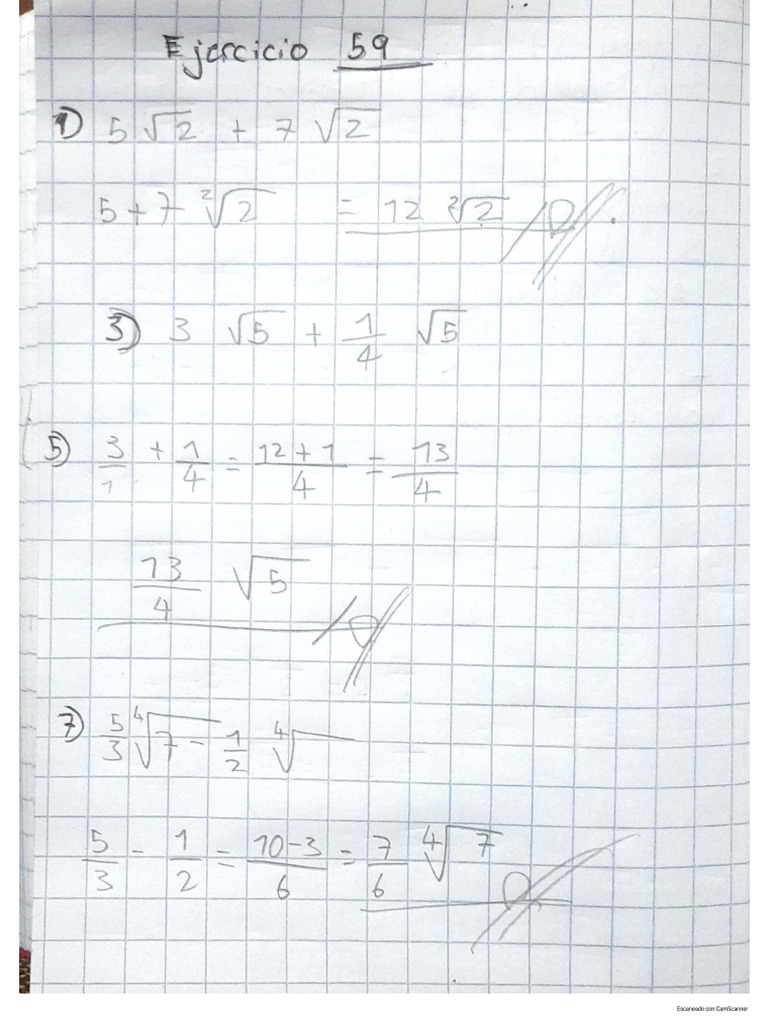 Ejercicio 59
1) 5 √2 + 7 √2
5 + 7 ²√2 = 12 ²√2
3) 3 √5 + 1/4 √5
5) 3/1 + 1/4 = 12 + 1/4 = 13/4
13/4 √5
7) 5/3 ⁴√7 - 1/2 ⁴√
5/3 - 1/2 = 10 - 3/6 = 7/6 ⁴√7
Escaneado con CamScanner